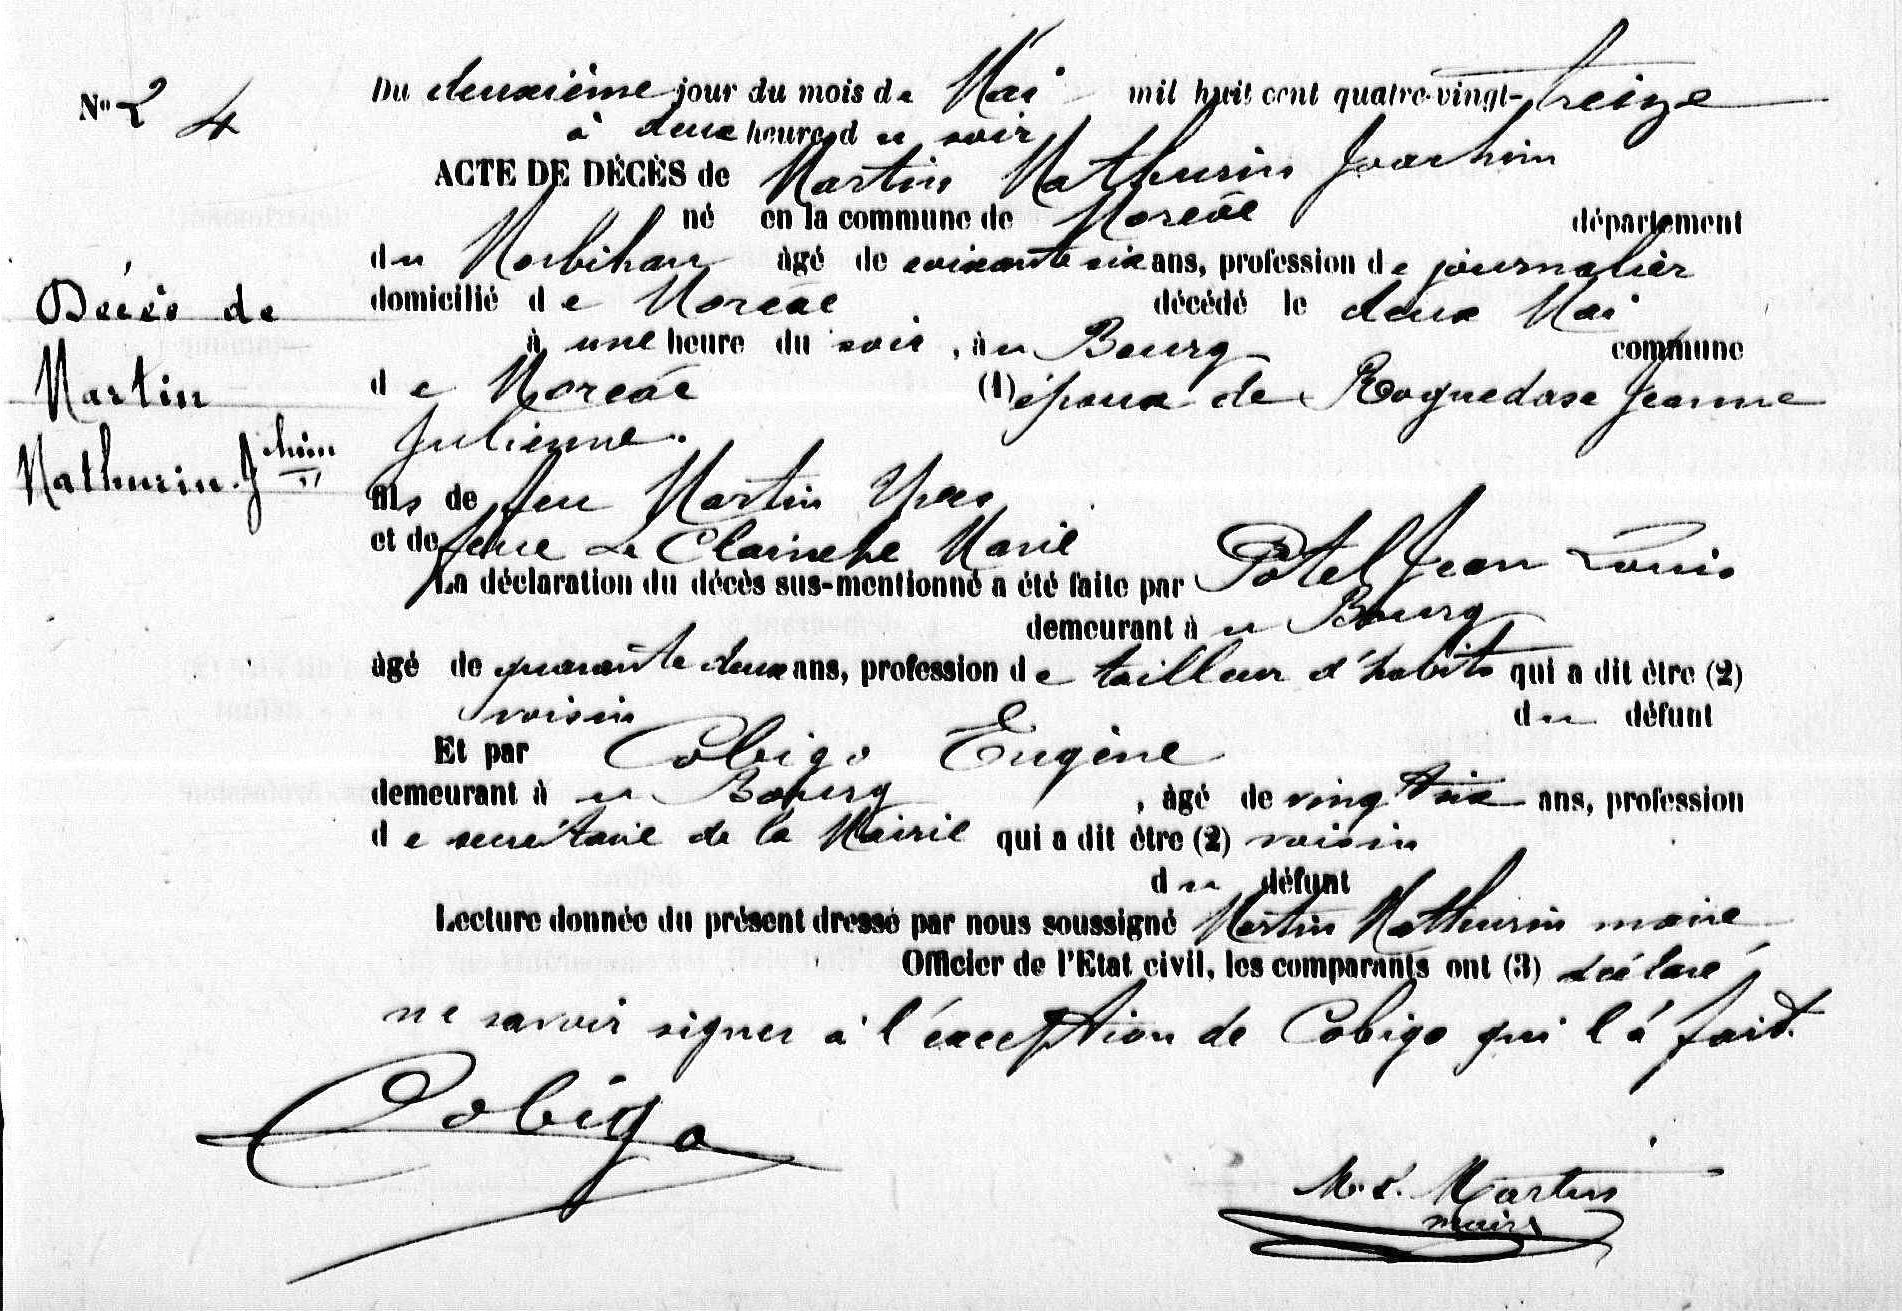 No 24
Du deuxième jour du mois de Mai mil huit cent quatre-vingt-treize
à deux heures du soir
ACTE DE DÉCÈS de Martin Mathurin Joachim
né en la commune de Moréac département
du Morbihan âgé de soixante six ans, profession de journalier
domicilié de Moréac décédé le deux Mai
à une heure du soir, au Bourg commune
de Moréac (1) époux de Roguedase Jeanne
Julienne.
fils de feu Martin Yves
et de feue Le Clainche Marie
La déclaration du décès sus-mentionné a été faite par Potel Jean Louis
demeurant à u Bourg
âgé de quarante deux ans, profession de tailleur d'habits qui a dit être (2)
voisin du défunt
Et par Cobigo Eugène
demeurant à u Bourg, âgé de vingt six ans, profession
de secrétaire de la Mairie qui a dit être (2) voisin
du défunt
Lecture donnée du présent dressé par nous soussigné Martin Mathurin maire
Officier de l'Etat civil, les comparants ont (3) déclaré
ne savoir signer à l'éxception de Cobigo qui l'á fait.
Cobigo
Martin
maire
Décès de
Martin
Mathurin Jchim